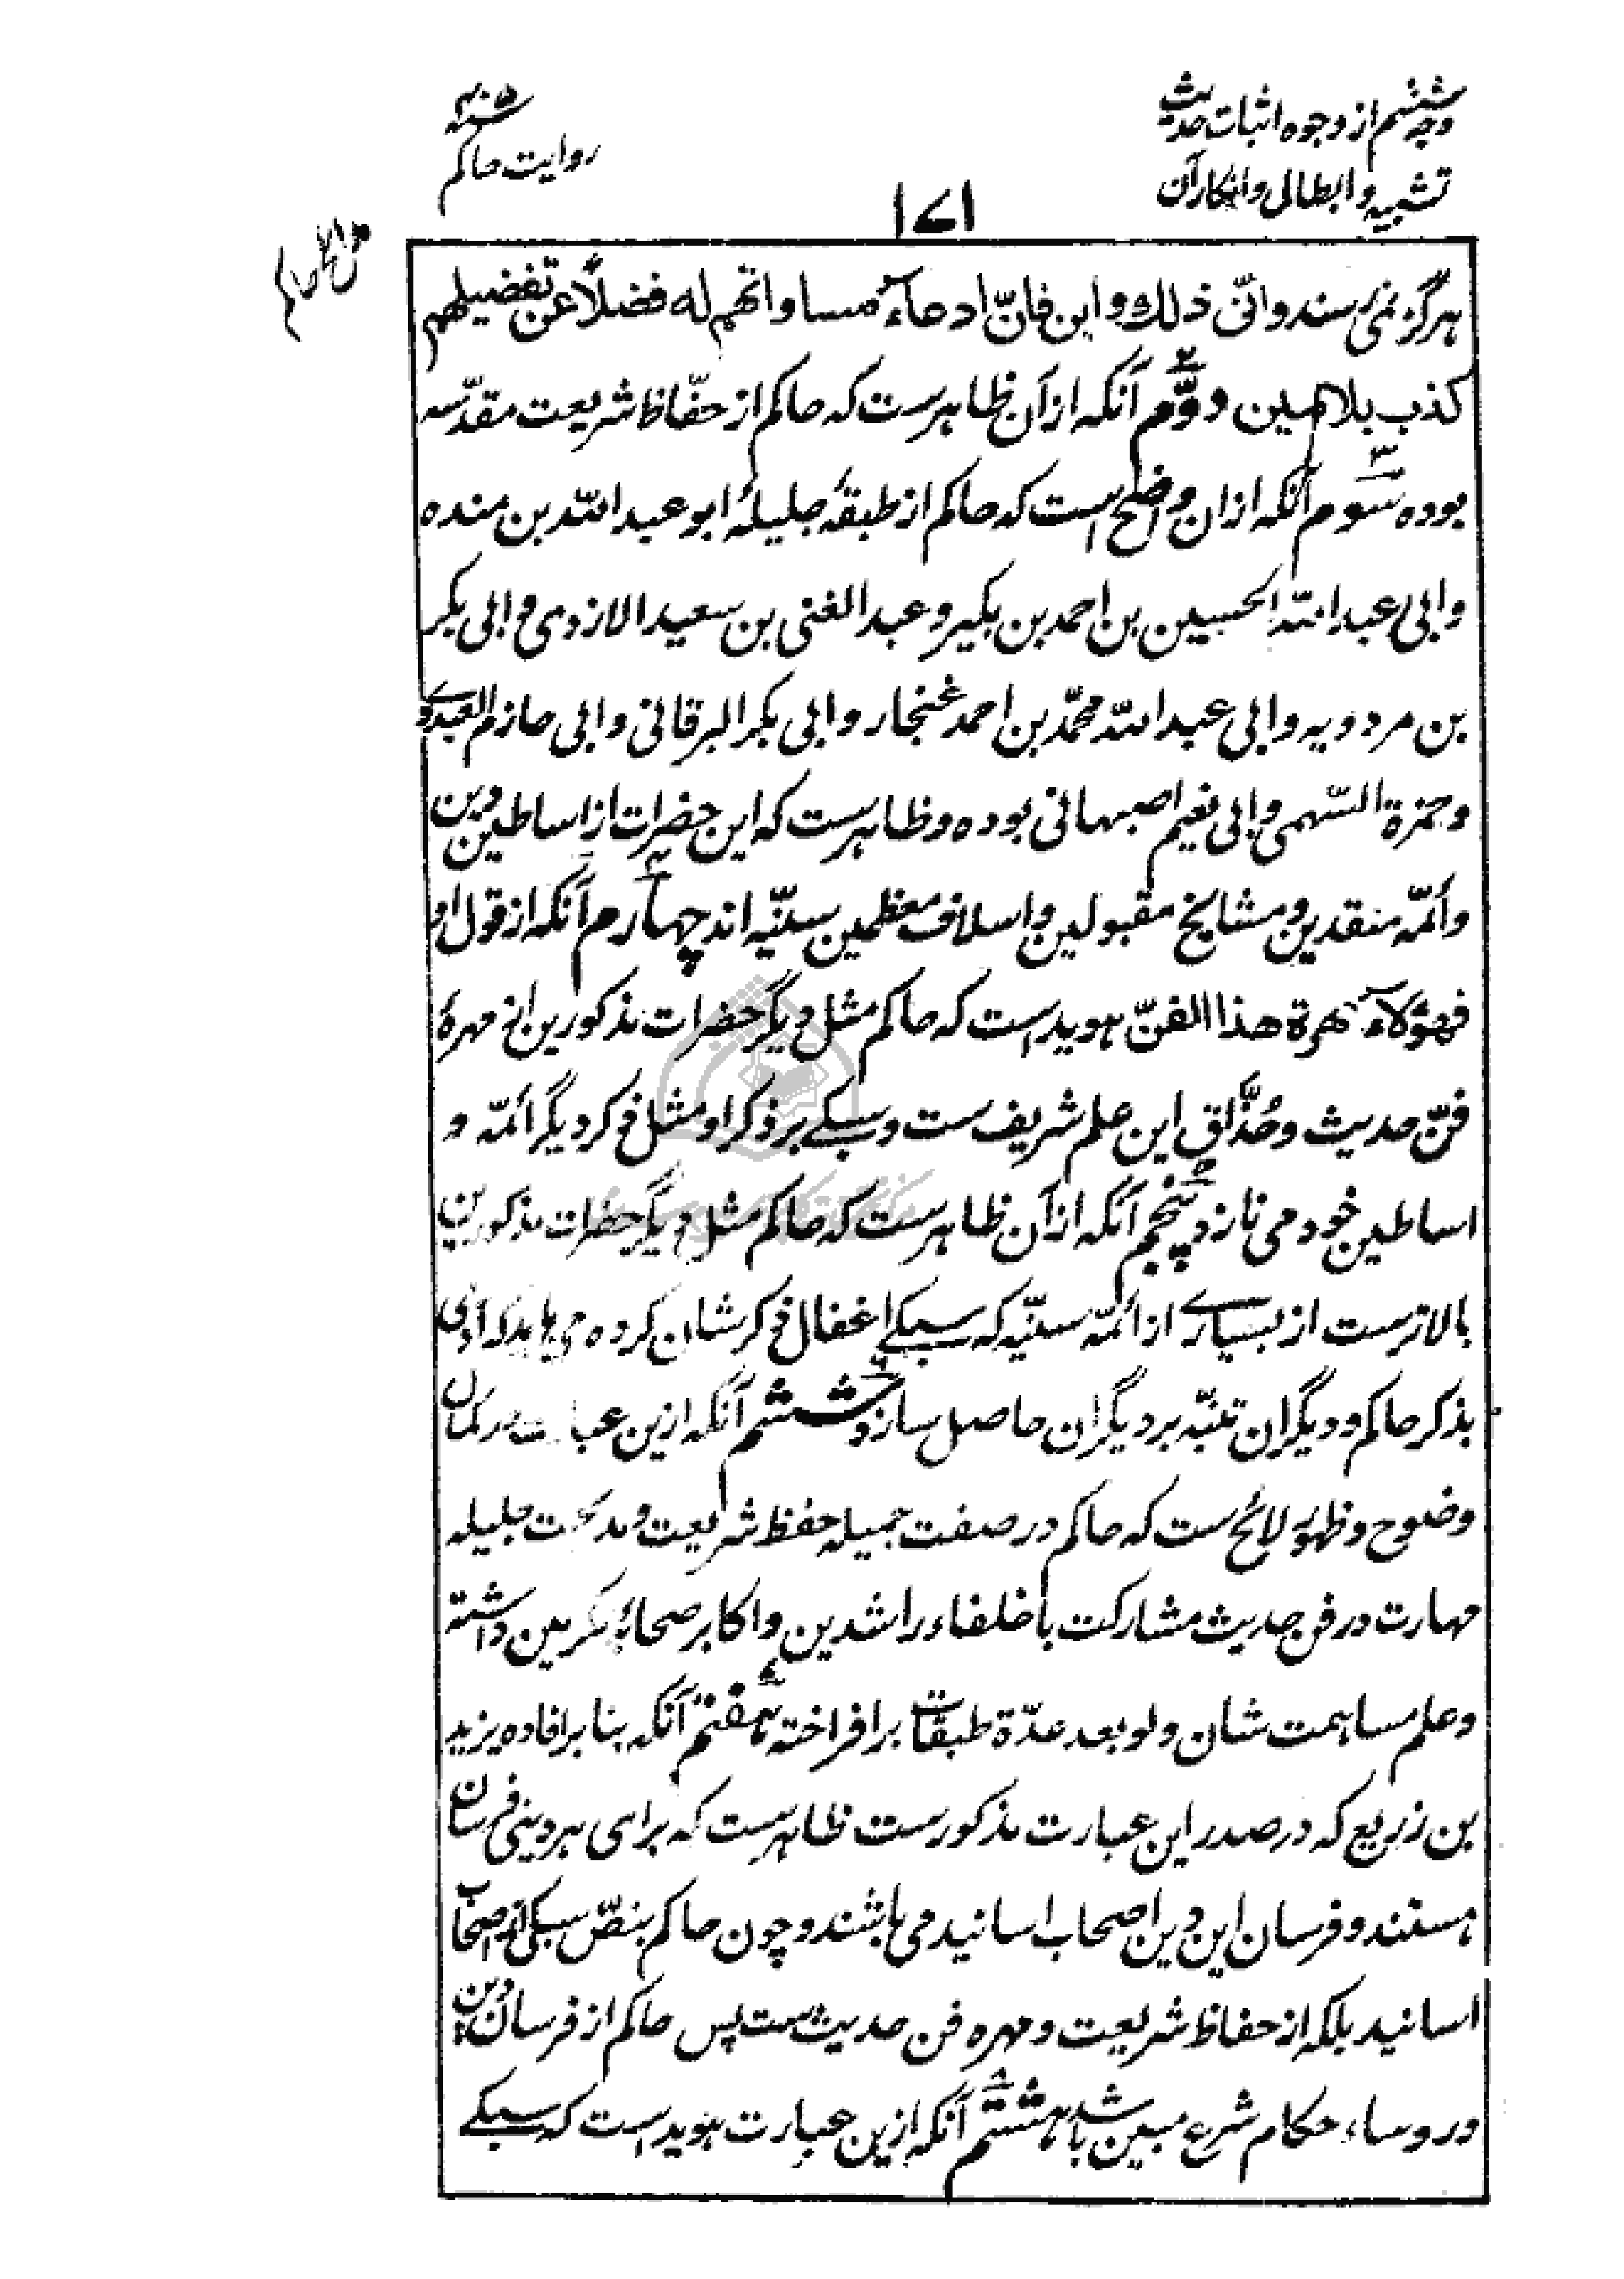 وجه ششم از وجوه اثبات حدیث
تشبیه و ابطال وانکار آن
سنه ۴۰۵
روایت حاکم
۱۷۱
هرگز نمی رسند وانّی ذلك واین فانّ ادعاء مساواتهم له فضلاً عن تفضیلهم
کذب بلا مین دوّم آنکه از آن ظاهرست که حاکم از حفّاظ شریعت مقدّسه
بوده سوم آنکه ازان واضح است که حاکم از طبقهٔ جلیلهٔ ابو عبد اللّه بن منده
وابی عبد اللّه الحسین بن احمد بن بکیر و عبد الغنی بن سعید الازدی و ابی بکر
بن مردویه وابی عبد اللّه محمّد بن احمد غنجار وابی بکر البرقانی وابی حازم العبدوی
وحمزة السّهمی وابی نعیم اصبهانی بوده وظاهرست که این حضرات از اساطین دین
وائمّه منقدین ومشایخ مقبولین واسلاف معظمین سنّیه اند چهارم آنکه از قول او
فهؤلاء مهرة هذا الفنّ هویداست که حاکم مثل دیگر حضرات مذکورین از مهرهٔ
فنّ حدیث وحُذّاق این علم شریف ست وسبکے بر ذکر او مثل ذکر دیگر ائمّه و
اساطین خود می نازد پنجم آنکه از آن ظاهرست که حاکم مثل دیگر حضرات مذکورین
بالاترست از بسیارے از ائمّه سنّیه که سبکے اغفال ذکر شان کرده می باید که آدمی
بذکر حاکم ودیگران تنبّه بر دیگران حاصل سازد ششم آنکه ازین عبارت در کمال
وضوح وظهور لائح ست که حاکم در صفت جمیله حفظ شریعت و مدحت جلیله
مهارت در فن حدیث مشارکت با خلفاء راشدین واکابر صحابهٔ مکرمین داشته
وعلم مساهمت شان ولو بعد عدّة طبقات برافراخته هفتم آنکه بنا بر افاده یزید
بن زریع که در صدر این عبارت مذکورست ظاهرست که برای هر دینی فرسان
هستند وفرسان این دین اصحاب اسانید می باشند وچون حاکم بنصّ سبکی از اصحاب
اسانید بلکه از حفاظ شریعت ومهره فن حدیث ست پس حاکم از فرسان دین
ورؤساء حکام شرع مبین باشد هشتم آنکه ازین عبارت هویداست که سبکے